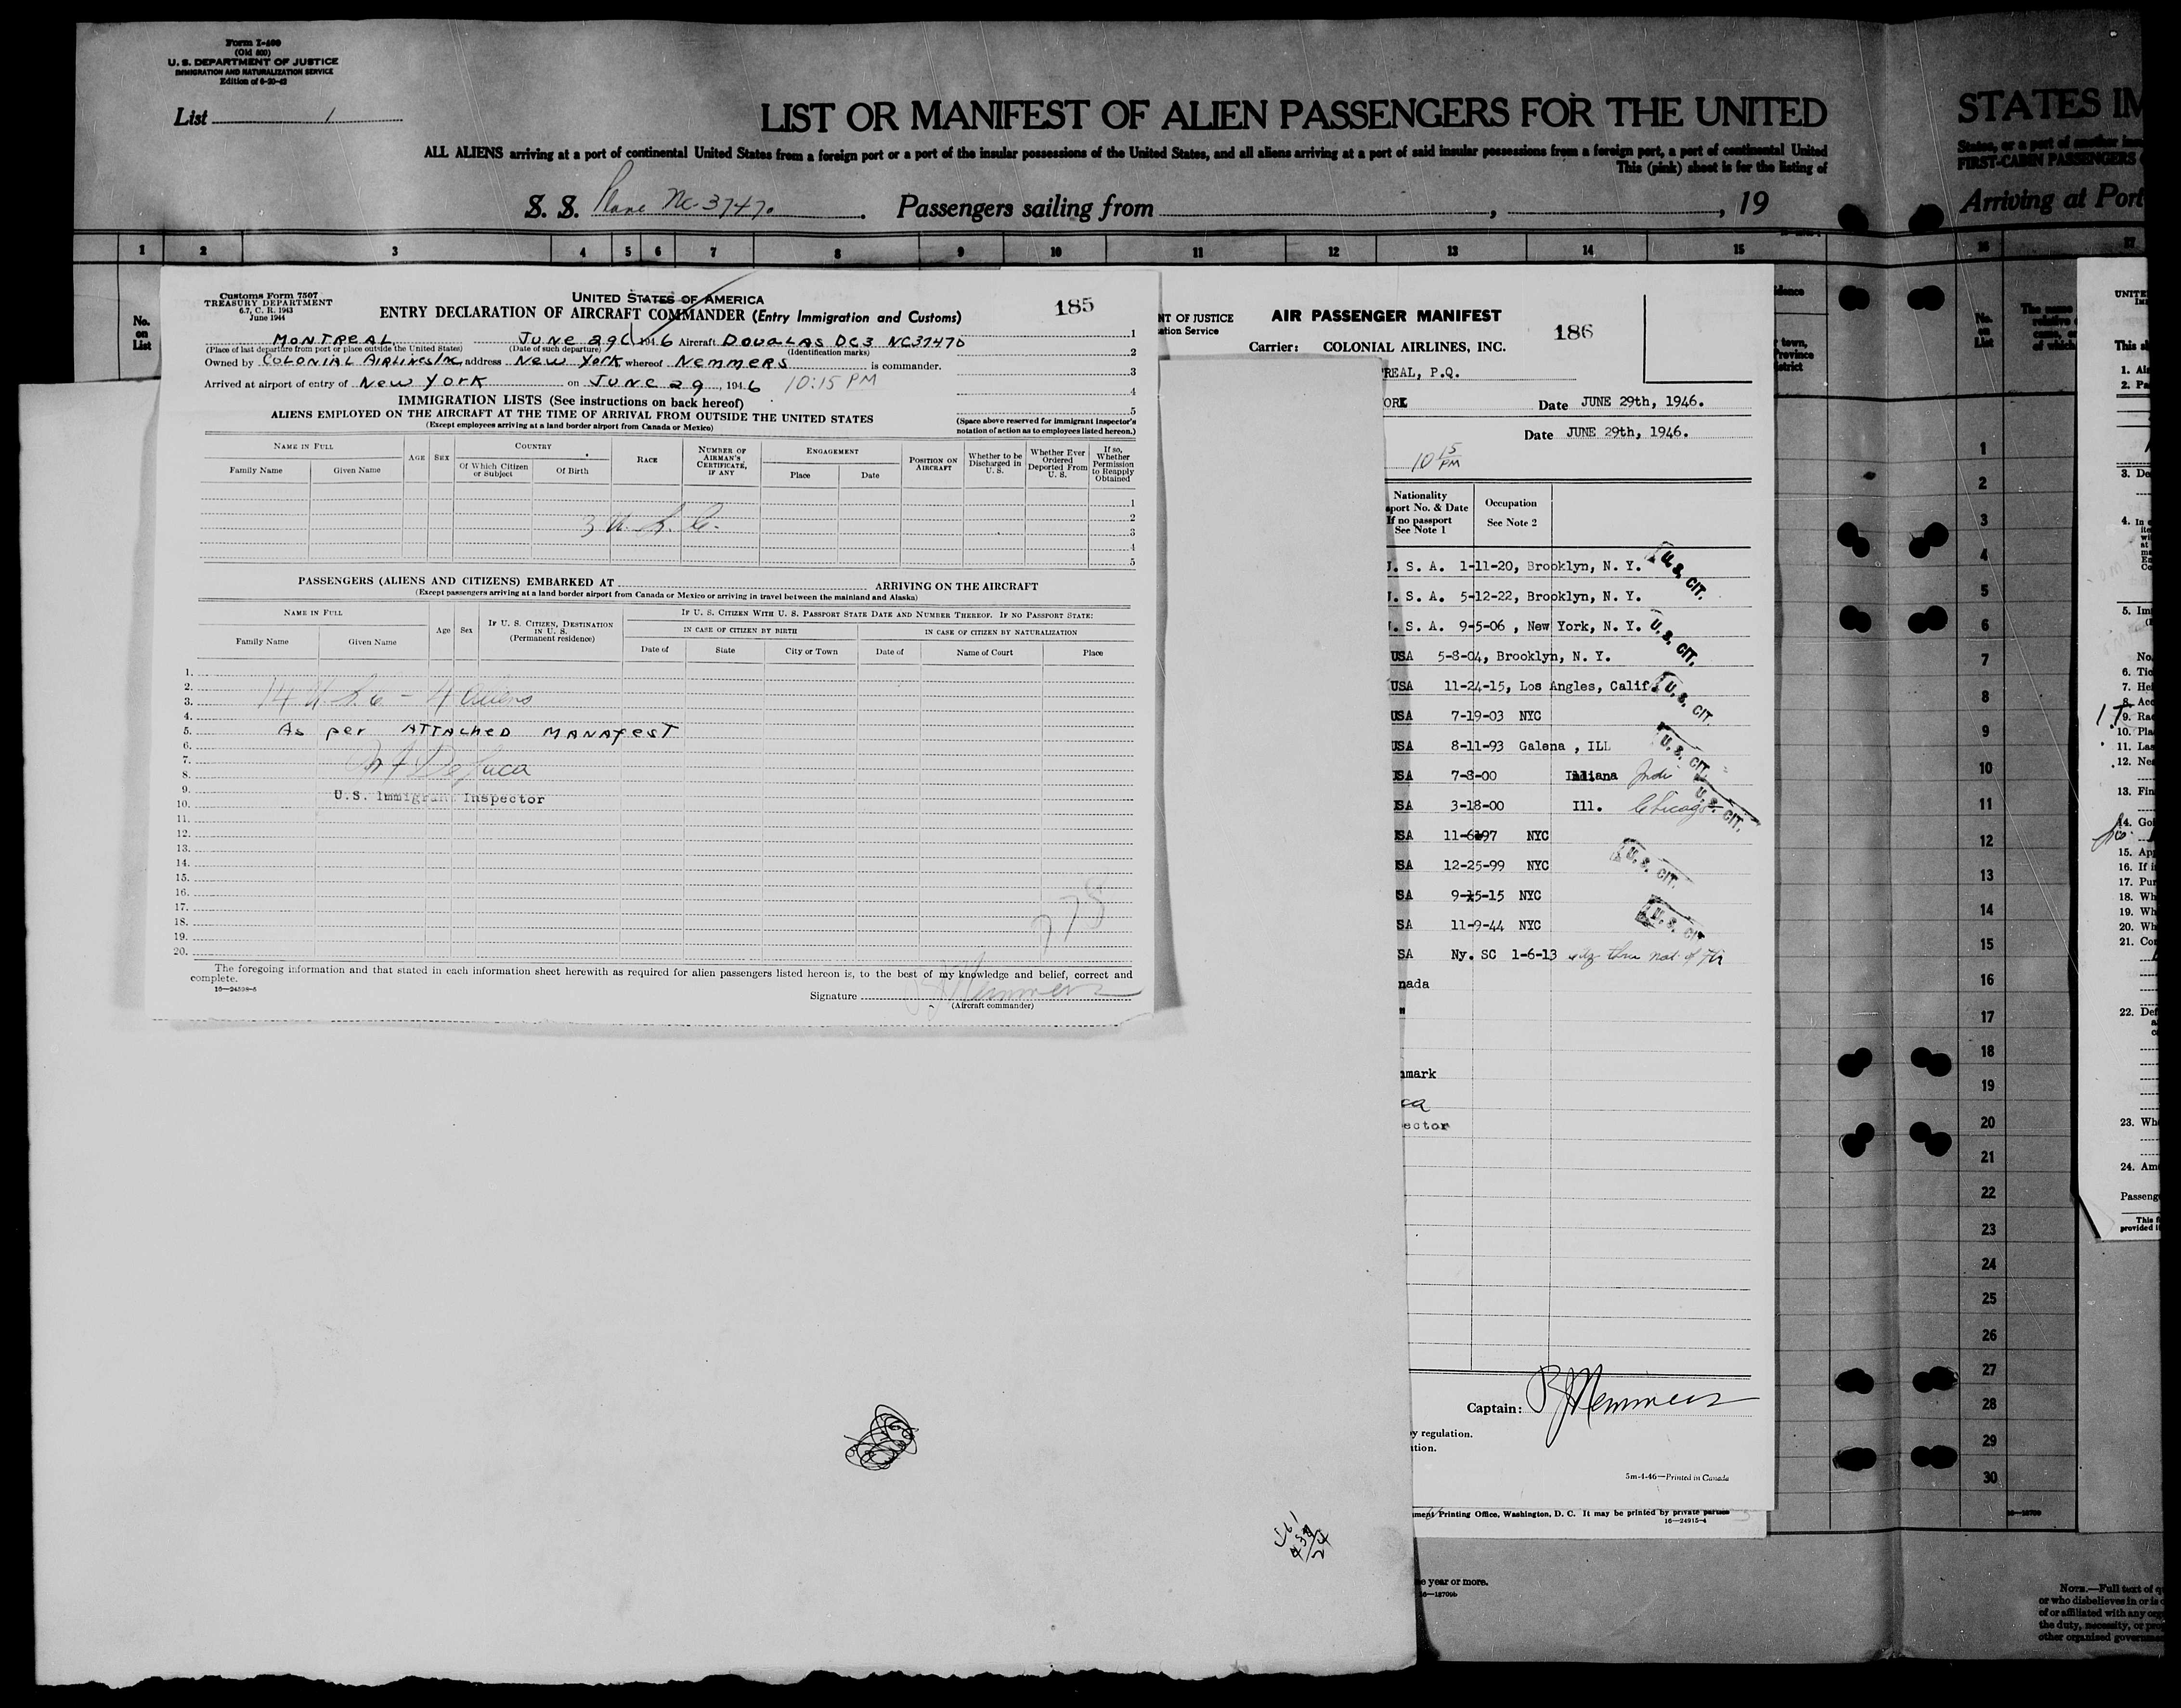 Form I-400
(Old 500)
U. S. DEPARTMENT OF JUSTICE
IMMIGRATION AND NATURALIZATION SERVICE
List 1
LIST OR MANIFEST OF ALIEN PASSENGERS FOR THE UNITED
STATES IM
ALL ALIENS arriving at a port of continental United States from a foreign port or a port of the insular possessions of the United States, and all aliens arriving at a port of said insular possessions from a foreign port, a port of continental United
This (pink) sheet is for the listing of
FIRST-CABIN PASSENGERS
S. S. Plane NC-37470. Passengers sailing from , , 19
Arriving at Port
1 2 3 4 5 6 7 8 9 10 11 12 13 14 15 16 17
No.
on
List
Customs Form 7507
TREASURY DEPARTMENT
6.7, C. R. 1943
June 1944
UNITED STATES OF AMERICA
ENTRY DECLARATION OF AIRCRAFT COMMANDER (Entry Immigration and Customs)
185
MONTREAL JUNE 29 1946 Aircraft DOUGLAS DC3 NC37470
(Place of last departure from port or place outside the United States) (Date of such departure) (Identification marks)
Owned by COLONIAL AIRLINES INC address NEW YORK whereof NEMMERS is commander.
Arrived at airport of entry of NEW YORK on JUNE 29, 1946 10:15 PM
1
2
3
4
5
IMMIGRATION LISTS (See instructions on back hereof)
ALIENS EMPLOYED ON THE AIRCRAFT AT THE TIME OF ARRIVAL FROM OUTSIDE THE UNITED STATES
(Except employees arriving at a land border airport from Canada or Mexico)
(Space above reserved for immigrant inspector's
notation of action as to employees listed hereon.)
NAME IN FULL
Family Name Given Name
AGE SEX
COUNTRY
Of Which Citizen or Subject Of Birth
RACE
NUMBER OF AIRMAN'S CERTIFICATE, IF ANY
ENGAGEMENT
Place Date
POSITION ON AIRCRAFT
Whether to be Discharged in U. S.
Whether Ever Ordered Deported From U. S.
If so, Whether Permission to Reapply Obtained
3 U. S. C.
1
2
3
4
5
PASSENGERS (ALIENS AND CITIZENS) EMBARKED AT ARRIVING ON THE AIRCRAFT
(Except passengers arriving at a land border airport from Canada or Mexico or arriving in travel between the mainland and Alaska)
NAME IN FULL
Family Name Given Name
Age Sex
IF U. S. CITIZEN, DESTINATION IN U. S. (Permanent residence)
IF U. S. CITIZEN WITH U. S. PASSPORT STATE DATE AND NUMBER THEREOF. IF NO PASSPORT STATE:
IN CASE OF CITIZEN BY BIRTH IN CASE OF CITIZEN BY NATURALIZATION
Date of State City or Town Date of Name of Court Place
1.
2. 14 U.S.C - 4 Aliens
3.
4.
5. As per ATTACHED MANAFEST
6.
7. DeLuca
8.
9. U.S. Immigrant Inspector
10.
11.
12.
13.
14.
15.
16.
17. 778
18.
19.
20.
The foregoing information and that stated in each information sheet herewith as required for alien passengers listed hereon is, to the best of my knowledge and belief, correct and
complete.
Signature Nemmers
(Aircraft commander)
NT OF JUSTICE
ation Service
AIR PASSENGER MANIFEST
186
Carrier: COLONIAL AIRLINES, INC.
REAL, P.Q.
ORK Date JUNE 29th, 1946.
Date JUNE 29th, 1946.
10 15 PM
Nationality
port No. & Date
If no passport
See Note 1
Occupation
See Note 2
. S. A. 1-11-20, Brooklyn, N. Y. U. S. CIT.
. S. A. 5-12-22, Brooklyn, N. Y.
. S. A. 9-5-06 , New York, N. Y. U. S. CIT.
USA 5-8-04, Brooklyn, N. Y.
USA 11-24-15, Los Angles, Calif. U. S. CIT.
USA 7-19-03 NYC
USA 8-11-93 Galena , ILL U. S. CIT.
SA 7-8-00 Indiana Indi
SA 3-18-00 Ill. Chicago U. S. CIT.
SA NYC
SA 12-25-99 NYC U. S. CIT.
SA 9-15-15 NYC
SA 11-9-44 NYC U. S. CIT
SA Ny. SC 1-6-13
nada
"
nmark
ca
ector
Captain: Nemmers
y regulation.
tion.
5m-4-46—Printed in Canada
ment Printing Office, Washington, D. C. It may be printed by private parties
16—24915-4
e year or more.
1
2
3
4
5
6
7
8
9
10
11
12
13
14
15
16
17
18
19
20
21
22
23
24
25
26
27
28
29
30
UNITE
This
3. De
No.
6. Tic
7. He
9. Ra
10. Pla
11. Las
12. Ne
13. Fin
14. Go
15. Ap
16. If i
17. Pur
18. Wh
19. Wh
20. Wh
21. Co
22. Def
23. Wh
24. Am
Passeng
This f
provided i
NOTE.—Full text of q
or who disbelieves in or is
of or affiliated with any org
the duty, necessity, or pro
other organized governme